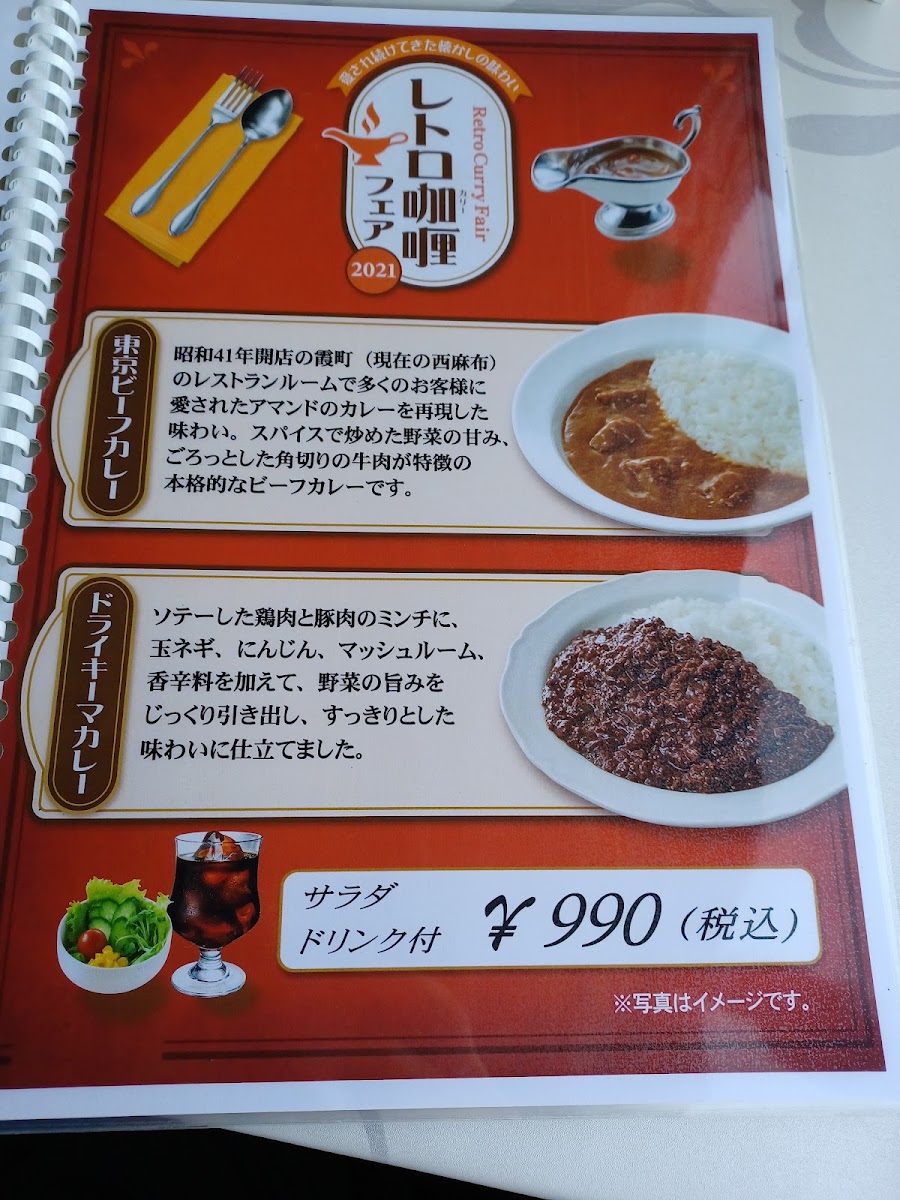 愛され続けてきた懐かしの味わい
Retro Curry Fair
レトロ咖喱
カリー
フェア
2021
東京ビーフカレー
昭和41年開店の霞町（現在の西麻布）
のレストランルームで多くのお客様に
愛されたアマンドのカレーを再現した
味わい。スパイスで炒めた野菜の甘み、
ごろっとした角切りの牛肉が特徴の
本格的なビーフカレーです。
ドライキーマカレー
ソテーした鶏肉と豚肉のミンチに、
玉ネギ、にんじん、マッシュルーム、
香辛料を加えて、野菜の旨みを
じっくり引き出し、すっきりとした
味わいに仕立てました。
サラダ
ドリンク付
¥990（税込）
※写真はイメージです。